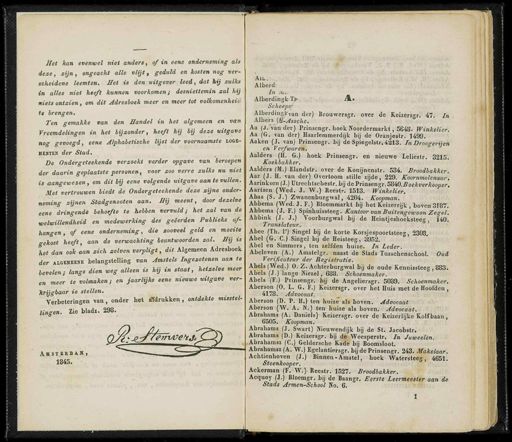 Het kan evenwel niet anders, of in eene onderneming als
deze, zijn, ongeacht alle vlijt, geduld en kosten nog ver-
scheidene leemten. Het is den uitgever leed, dat hij zulks
in alles niet heeft kunnen voorkomen; desniettemin zal hij
niets ontzien, om dit Adresboek meer en meer tot volkomenheid
te brengen.
Ten gemakke van den Handel in het algemeen en van
Vreemdelingen in het bijzonder, heeft hij bij deze uitgave
nog gevoegd, eene Alphabetische lijst der voornaamste LOGE-
MENTEN der Stad.
De Ondergeteekende verzoekt verder opgave van beroepen
der daarin geplaatste personen, voor zoo verre zulks nu niet
is aangewezen, om dit bij eene volgende uitgave aan te vullen.
Met vertrouwen biedt de Ondergeteekende deze zijne onder-
neming zijnen Stadgenooten aan. Hij meent, door dezelve
eene dringende behoefte te hebben vervuld; het zal van de
welwillendheid en medewerking der geëerden Publieks af-
hangen, of eene onderneming, die zooveel geld en moeite
gekost heeft, aan de verwachting beantwoorden zal. Hij is
het dan ook aan zich zelven verpligt, dit Algemeen Adresboek
der ALGEMEENE belangstelling van Amstels Ingezetenen aan te
bevelen; lange dien weg alleen is hij in staat, hetzelve meer
en meer te volmaken; en jaarlijks eene nieuwe uitgave ver-
krijgbaar te stellen.
Verbeteringen van, onder het afdrukken, ontdekte misstel-
lingen. Zie bladz. 298.
R: Stemvers
AMSTERDAM,
1845.
A.
Alberd
Alberdingk
Scheeps
Alberding(van der) Brouwersgr. over de Keizersgr. 47. In
Aa (J. van der) Prinsengr. hoek Noordermarkt, 5643. Winkelier.
Aa (G. van der) Haarlemmerdijk bij de Oranjestr. 1490.
Aaken (J. van) Prinsengr. bij de Spiegelstr. 4213. In Droogerijen
en Verfwaren.
Aalders (H. G.) hoek Prinsengr. en nieuwe Leliestr. 3215.
Koekbakker.
Aalders (M.) Elandstr. over de Konijnenstr. 534. Broodbakker.
Aar (J. H. van der) Overtoom stille zijde, 229. Korenmolenaar.
Aarinksen (J.) Utrechtschestr. bij de Prinsengr. 5840. Boekverkooper.
Aartsen (Wed. J. W.) Reestr. 5313. Winkelier.
Abas (S. J.) Zwanenburgwal, 4204. Koopman.
Abbema (Wed. J. F.) Bloemmarkt bij het Keizerrijk, boven 3187.
Abbema (J. F.) Spinhuissteeg. Kantoor van Buitengewoon Zegel.
Abbink (J. J.) Voorburgwal bij de Heintjehoeksteeg, 140.
Translateur.
Abee (Th. P) Singel bij de korte Korsjespoortsteeg, 2308.
Abel (G. C.) Singel bij de Heisteeg, 3952.
Abel en Simmers, ten zelfden huize. In Leder.
Abeleven (A.) Amstelgr. naast de Stads Tusschenschool. Oud
Verificateur der Registratie.
Abels (Wed.) O. Z. Achterburgwal bij de oude Kennissteeg, 883.
Abels (J.) lange Niezel, 683. Schoenmaker.
Abels (F.) Prinsengr. bij de Angeliersgr. 5083. Schoenmaker.
Aberson (O. L. G. F.) Keizersgr. over het Huis met de Hoofden,
4178. Advocaat.
Aberson (D. P. H.) ten huize als boven. Advocaat.
Aberson (W. A. N.) ten huize als boven. Advocaat.
Abrahams (A. Daniels) Keizersgr. over de Keizerlijke Kolfbaan,
6505. Koopman.
Abrahams (J. Swart) Nieuwendijk bij de St. Jacobstr.
Abrahams (D.) Keizersgr. bij de Weesperstr. In Juweelen.
Abrahamsz (C.) Geldersche Kade bij Boomsloot.
Abrahamsz (A. W.) Egelantiersgr. bij de Prinsengr. 243. Makelaar.
Achtienhoven (J.) Binnen-Amstel, hoek Watersteeg, 4651.
Steenkooper.
Ackerman (F. W.) Reestr. 1527. Broodbakker.
Acquoy (J.) Bloemgr. bij de Baangr. Eerste Leermeester aan de
Stads Armen-School No. 6.
1